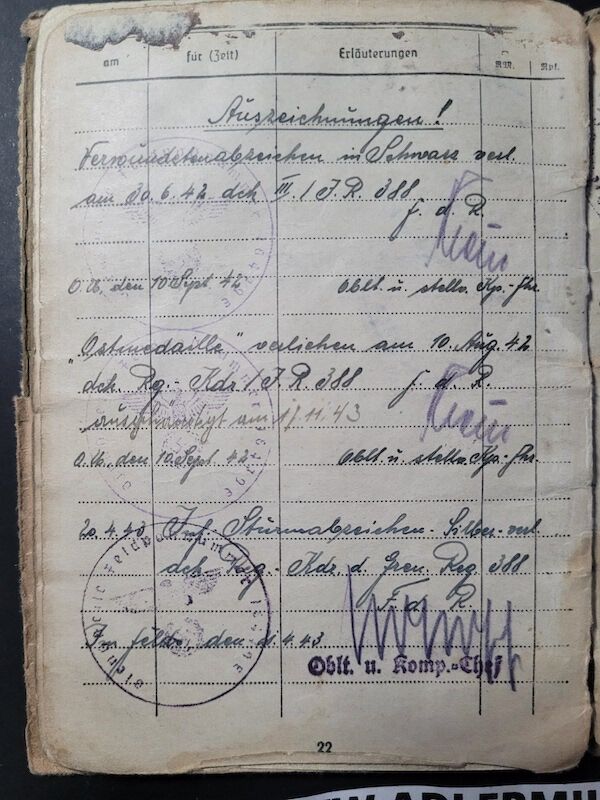 am für (Zeit) Erläuterungen RM. Rpf.
Auszeichnungen!
Verwundetenabzeichen in Schwarz verl.
am 30.6.42 dch III / J.R. 388
f. d. R.
O.U. den 10 Sept 42 Oblt. u. stellv. Kp.-Fhr.
„Ostmedaille" verliehen am 10. Aug. 42
dch. Rg.-Kdr / J.R 388 f. d. R.
ausgehändigt am 17.11.43
O.U. den 10. Sept. 42 Oblt. u. stellv. Kp.-Fhr.
20.4.43 Inf. Sturmabzeichen-Silber-verl.
dch. Reg.-Kdr. d. Gren. Reg 388
F. d. R.
Im Felde, den 4.43
Oblt. u. Komp.-Chef
22